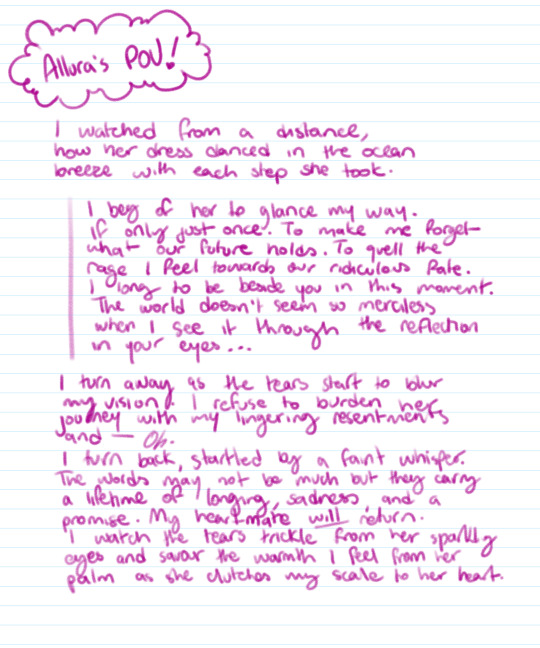 Allura's POV!
I watched from a distance,
how her dress danced in the ocean
breeze with each step she took.
I beg of her to glance my way.
If only just once. To make me forget
what our future holds. To quell the
rage I feel towards our ridiculous fate.
I long to be beside you in this moment.
The world doesn't seem so merciless
when I see it through the reflection
in your eyes...
I turn away as the tears start to blur
my vision. I refuse to burden her
journey with my lingering resentments
and — Oh.
I turn back, startled by a faint whisper.
The words may not be much but they carry
a lifetime of longing, sadness, and a
promise. My heartmate will return.
I watch the tears trickle from her sparkly
eyes and savour the warmth I feel from her
palm as she clutches my scale to her heart.